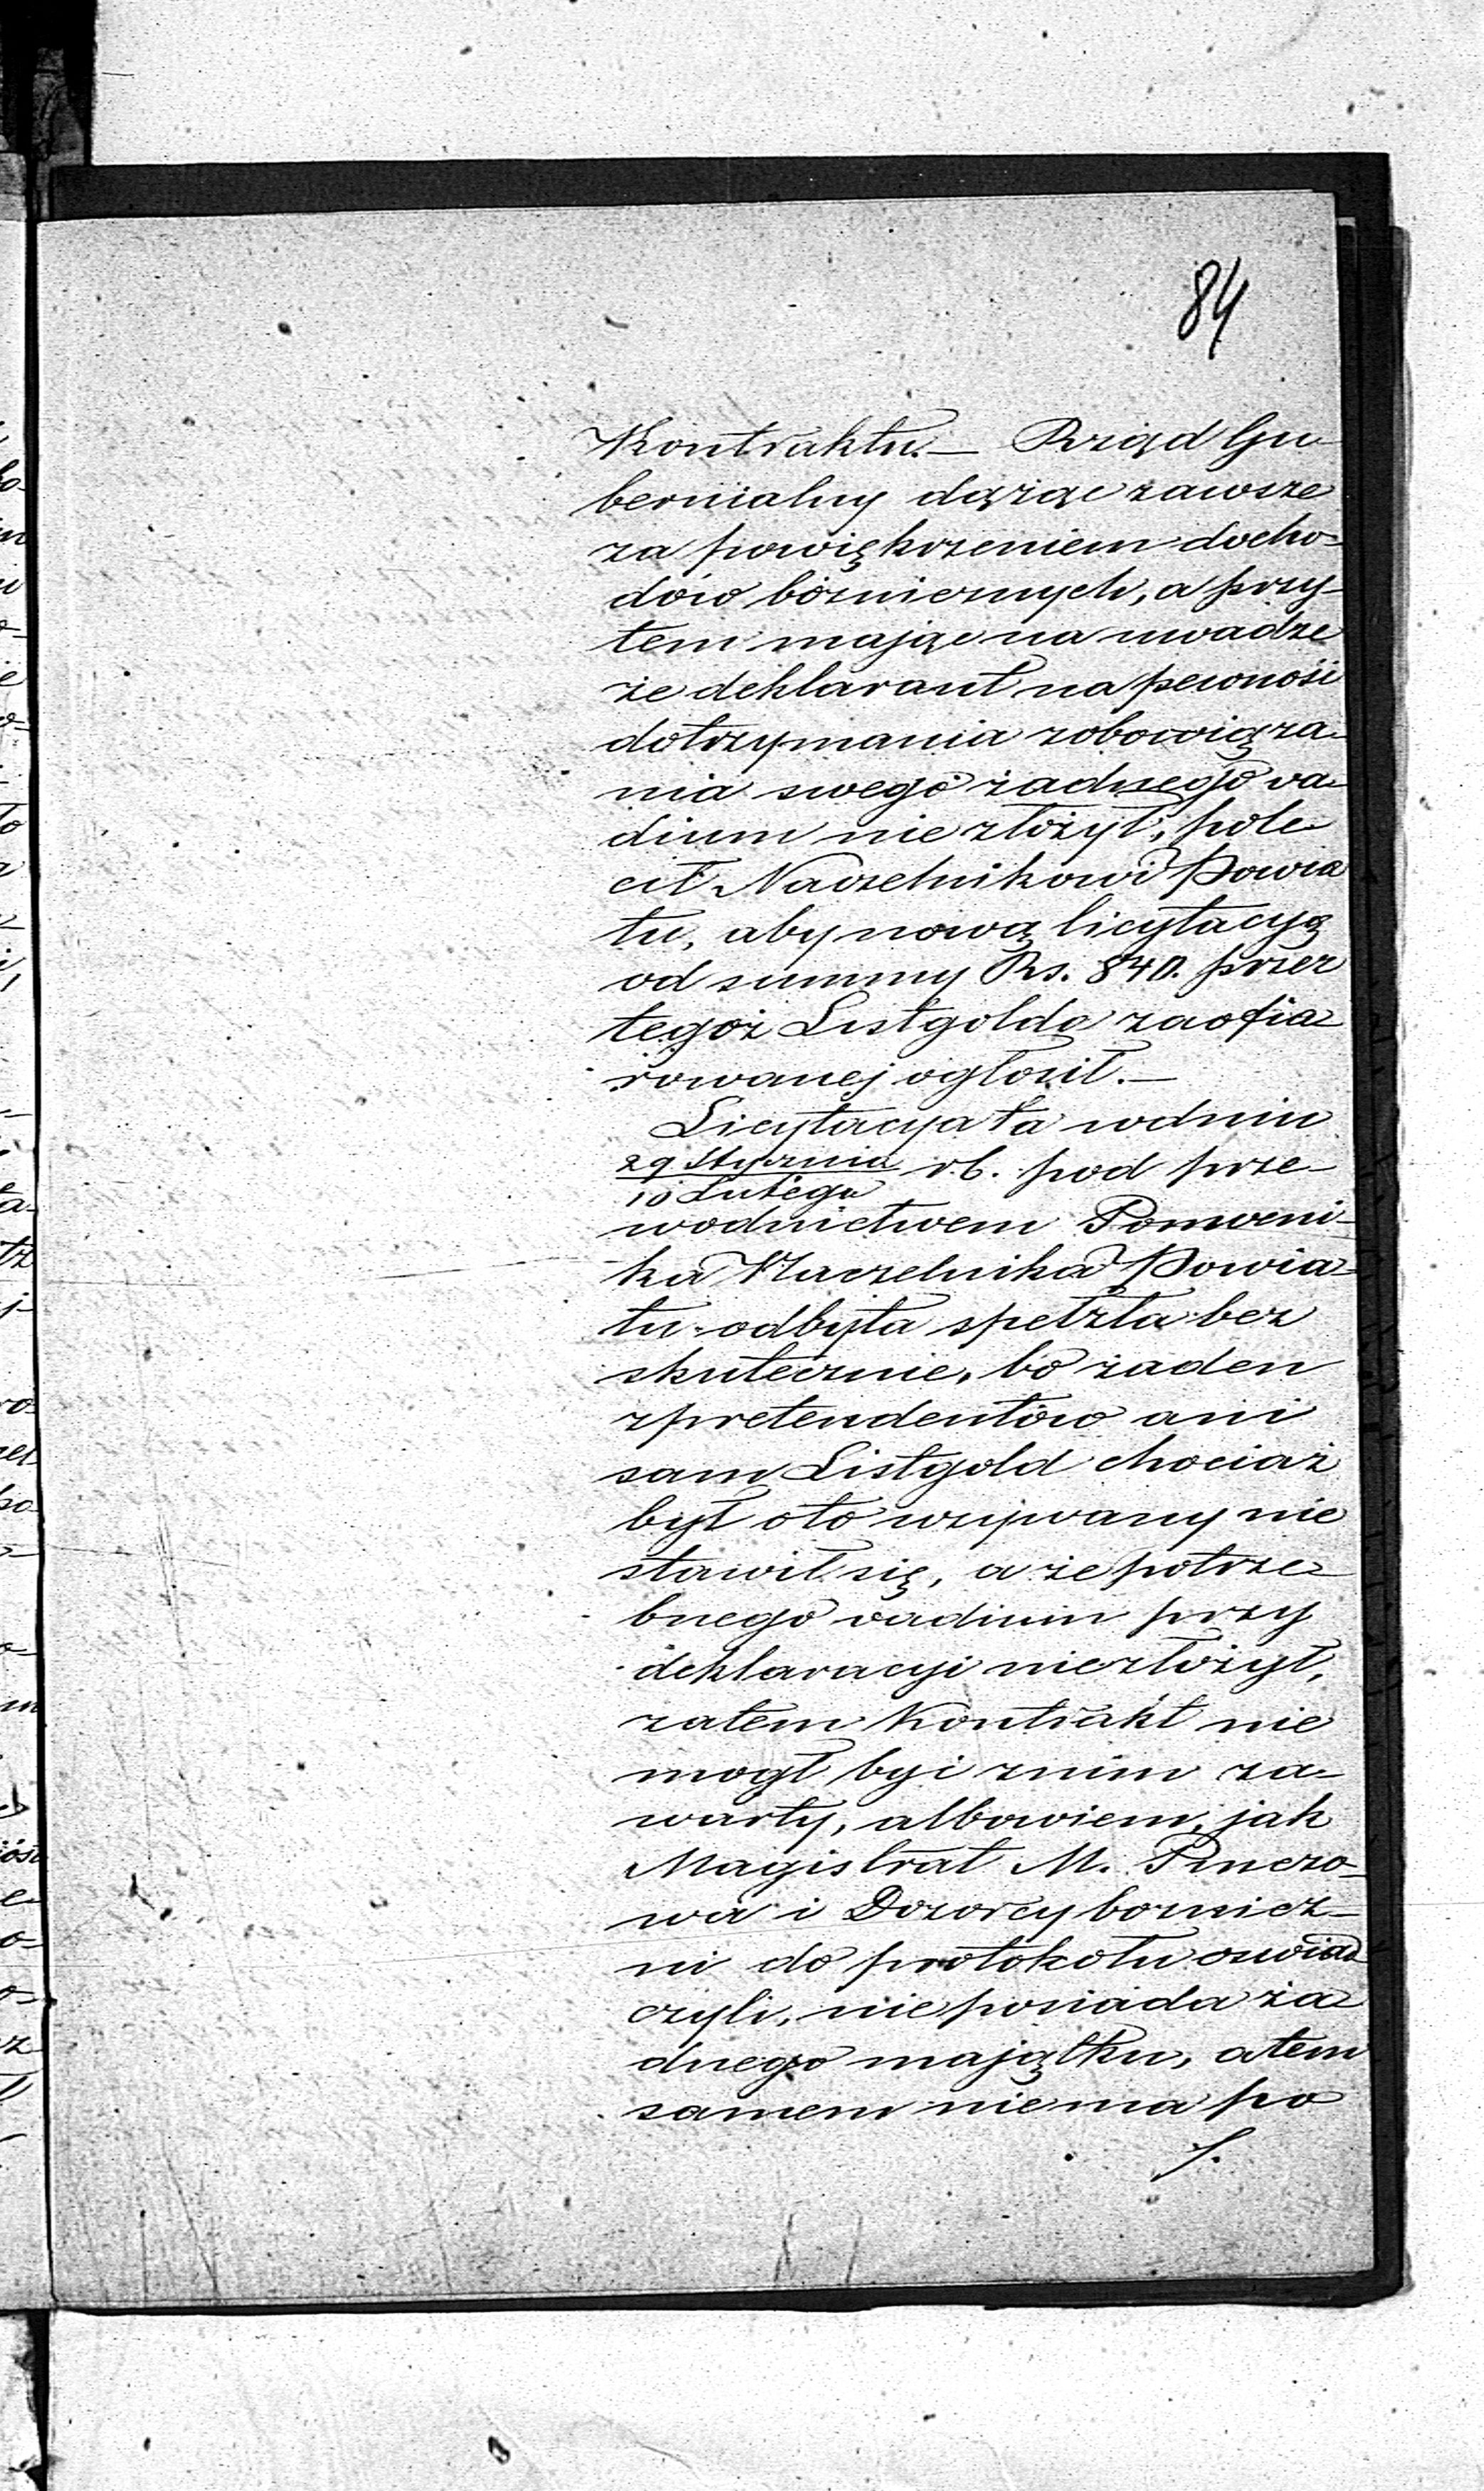 84
Kontraktu. — Rząd Gu-
bernialny dążąc zawsze
za powiększeniem docho-
dów bóżnicznych, a przy-
tem mając na uwadze
że deklarant na pewność
dotrzymania zobowiąza-
nia swego żadnego va-
dium nie złożył, pole-
cił Naczelnikowi Powia
tu, aby nową licytacyą
od summy Rs. 840. przez
tegoż Listgolda zaofia-
rowanej ogłosił. —
Licytacya ta wdniu
29 Stycznia
10 Lutego r.b. pod prze-
wodnictwem Pomocni-
ka Naczelnika Powia-
tu odbyta spełzła bez
skutecznie, bo żaden
zpretendentów ani
sam Listgold chociaż
był oto wzywany nie
stawił się, a że potrze-
bnego vadium przy
deklaracyi niezłożył,
zatem Kontrakt nie
mogł być znim za-
warty, albowiem, jak
Magistrat M. Pinczo-
wa i Dozorcy boznicz-
ni do protokołu oswiad
czyli, nie posiada ża-
dnego majątku, atem
samem niema po